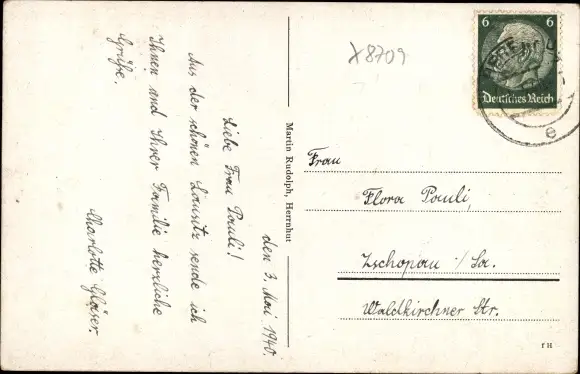 den 3. Mai 1940.
Liebe Frau Pauli!
Aus der schönen Lausitz sende ich
Ihnen und Ihrer Familie herzliche
Grüße.
Charlotte Gläser
Martin Rudolph, Herrnhut
X8709
6 6
Deutsches Reich
e
Frau
Flora Pauli,
Zschopau i/Sa.
Waldkirchner Str.
f H